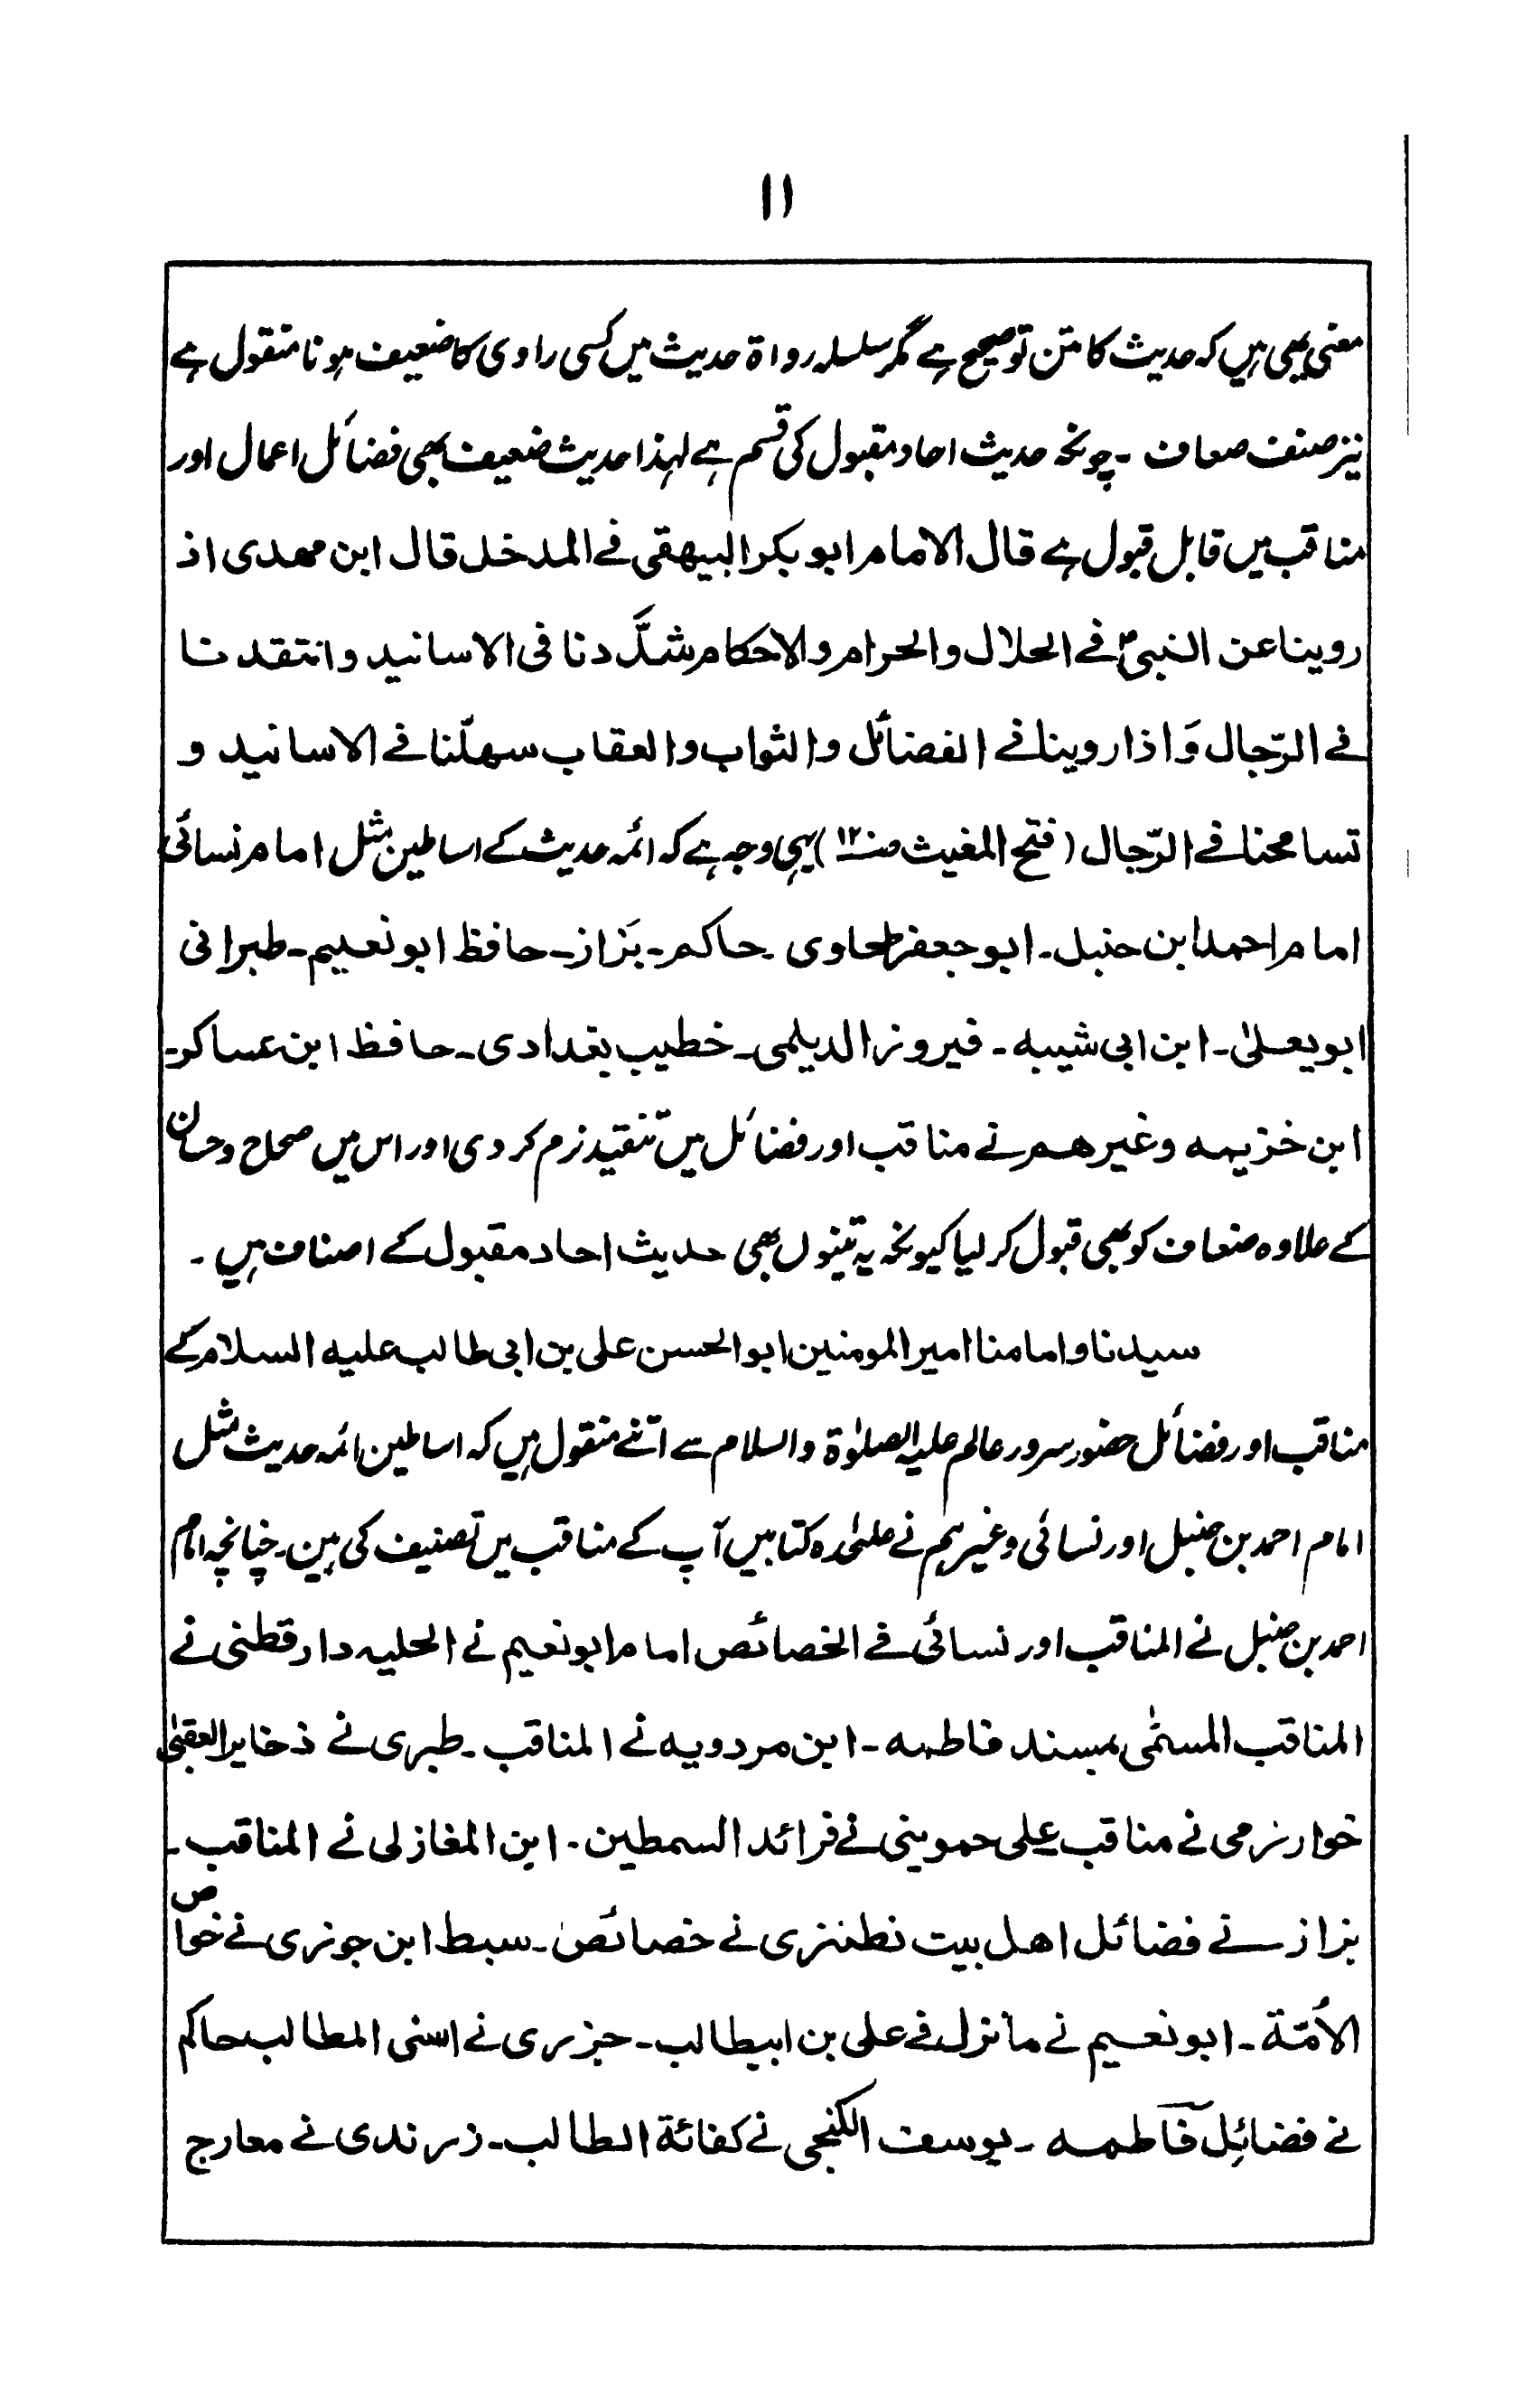 ۱۱
معنی یہی ہیں کہ حدیث کا متن تو صحیح ہے مگر سلسلہ رواۃ حدیث میں کسی راوی کا ضعیف ہونا منقول ہے
نیز صنف ضعاف ۔ چونکہ حدیث احاد مقبول کی قسم ہے لہذا حدیث ضعیف بھی فضائل اعمال اور
مناقب میں قابل قبول ہے قال الامام ابو بکر البیهقی فے المدخل قال ابن مهدی اذ
روینا عن النبیؐ فے الحلال والحرام والاحکام شدّدنا فی الاسانید وانتقدنا
فے الرّجال وَاذا روینا فے الفضائل والثواب والعقاب سهلّنا فے الاسانید و
تسامحنا فے الرّجال (فتح المغیث صـ۱۲۰) یہی وجہ ہے کہ ائمہ حدیث کے اساطین مثل امام نسائی
امام احمد ابن حنبل۔ ابو جعفر طحاوی ۔ حاکم۔ بزاز۔ حافظ ابو نعیم۔ طبرانی
ابو یعلیٰ۔ ابن ابی شیبہ ۔ فیروز الدیلمی۔ خطیب بغدادی۔ حافظ ابن عساکر۔
ابن خزیمہ وغیرهم نے مناقب اور فضائل میں تنقید نرم کر دی اور اس میں صحاح وحسان
کے علاوہ ضعاف کو بھی قبول کر لیا کیونکہ یہ تینوں بھی حدیث احاد مقبول کے اصناف ہیں ۔
سیدنا و امامنا امیر المومنین ابو الحسن علی بن ابی طالب علیہ السلام کے
مناقب اور فضائل حضور سرور عالم علیہ الصلوٰۃ والسلام سے اتنے منقول ہیں کہ اساطین ائمہ حدیث مثل
امام احمد بن حنبل اور نسائی وغیرہم نے علیٰحدہ کتابیں آپ کے مناقب میں تصنیف کی ہیں۔ چنانچہ امام
احمد بن حنبل نے المناقب اور نسائی نے الخصائص امام ابو نعیم نے الحلیہ دارقطنی نے
المناقب المسمّٰی بمسند فاطمہ ۔ ابن مردویہ نے المناقب ۔ طبری نے ذخایر العقبیٰ
خوارزمی نے مناقب علی حموینی نے فرائد السمطین ۔ ابن المغازلی نے المناقب ۔
بزاز نے فضائل اهل بیت نطنزی نے خصائص ۔ سبط ابن جوزی نے خواص
الاُمّة ۔ ابو نعیم نے مانزل فے علی بن ابیطالب ۔ جزری نے اسنی المطالب حاکم
نے فضائل فاطمہ ۔ یوسف الکنجی نے کفائة الطالب ۔ زرندی نے معارج